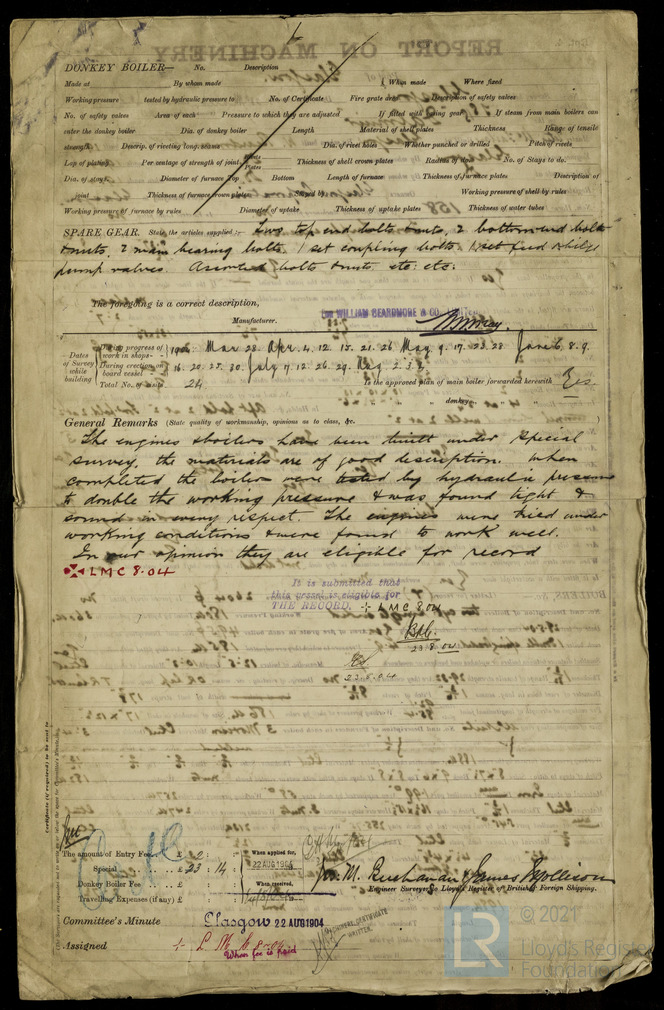 DONKEY BOILER— No. Description
Made at By whom made When made Where fixed
Working pressure tested by hydraulic pressure to No. of Certificate Fire grate area Description of safety valves
No. of safety valves Area of each Pressure to which they are adjusted If fitted with easing gear If steam from main boilers can
enter the donkey boiler Dia. of donkey boiler Length Material of shell plates Thickness Range of tensile
strength Descrip. of riveting long. seams Dia. of rivet holes Whether punched or drilled Pitch of rivets
Lap of plating Per centage of strength of joint Rivets Plates Thickness of shell crown plates Radius of do. No. of Stays to do.
Dia. of stays Diameter of furnace Top Bottom Length of furnace Thickness of furnace plates Description of
joint Thickness of furnace crown plates Stayed by Working pressure of shell by rules
Working pressure of furnace by rules Diameter of uptake Thickness of uptake plates Thickness of water tubes
SPARE GEAR. State the articles supplied:— Two top end bolts & nuts, 2 bottom end bolts
& nuts, 2 main bearing bolts, 1 set coupling bolts, 1 set feed & bilge
pump valves. Assorted bolts & nuts, etc. etc.
The foregoing is a correct description,
For WILLIAM BEARDMORE & CO. LIMITED
Manufacturer.
Dates of Survey while building
During progress of work in shops— Mar 28 Apr. 4. 12. 15. 21. 26 May 9. 17. 23. 28 June 6. 8. 9
During erection on board vessel— 16. 20. 25. 30 July 7. 12. 26. 29. Aug 2. 3. 8
Total No. of visits 24 Is the approved plan of main boiler forwarded herewith Yes
" " " donkey " " "
General Remarks (State quality of workmanship, opinions as to class, &c.
The engines & boilers have been built under Special
survey, the materials are of good description. When
completed the boilers were tested by hydraulic pressure
to double the working pressure & was found tight &
sound in every respect. The engines were tried under
working conditions & were found to work well.
In our opinion they are eligible for record
LMC 8.04
It is submitted that
this vessel is eligible for
THE RECORD. + LMC 8.04
23.8.04
23.8.04
Certificate (if required) to be sent to
The amount of Entry Fee. £ 2 : : When applied for,
Special £ 23 : 14 : 22 AUG 1904
Donkey Boiler Fee £ : : When received,
Travelling Expenses (if any) £ : :
M. Buchanan & James Mollison
Engineer Surveyor to Lloyd's Register of British & Foreign Shipping.
Committee's Minute Glasgow 22 AUG 1904
Assigned + L M C 8.04
When fee is paid
MACHINERY CERTIFICATE
WRITTEN.
LR
© 2021
Lloyd's Register
Foundation